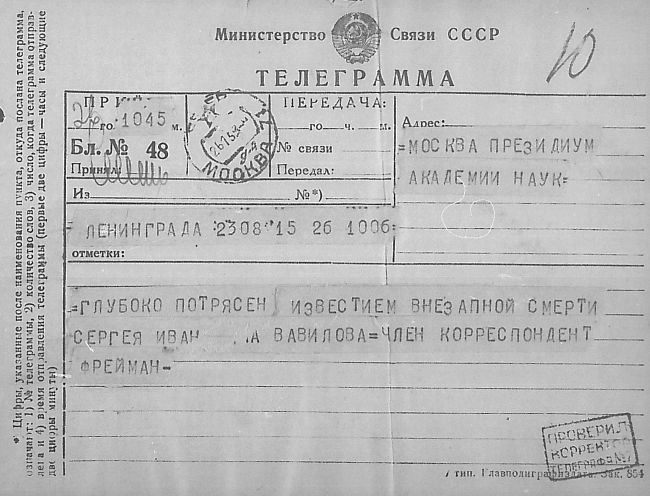 Министерство Связи СССР
ТЕЛЕГРАММА
10
ПРИ
26го 1045 м.
Бл. № 48
Принял:
МОСКВА
ПЕРЕДАЧА:
го ч. м.
№ связи
Передал:
Адрес:
=МОСКВА ПРЕЗИДИУМ
АКАДЕМИИ НАУК=
Из №*)
ЛЕНИНГРАДА 2308 15 26 1006=
отметки:
=ГЛУБОКО ПОТРЯСЕН ИЗВЕСТИЕМ ВНЕЗАПНОЙ СМЕРТИ
СЕРГЕЯ ИВАН А ВАВИЛОВА=ЧЛЕН КОРРЕСПОНДЕНТ
ФРЕЙМАН-
ПРОВЕРИЛ
КОРРЕКТОР
ТЕЛЕГРАФА
тип. Главполиграфиздата. Зак. 854
*) Цифры, указанные после наименования пункта, откуда послана телеграмма,
означают: 1) № телеграммы, 2) количество слов, 3) число, когда телеграмма отправ-
лена и 4) время отправления телеграммы (первые две цифры—часы и следующие
две цифры минуты)